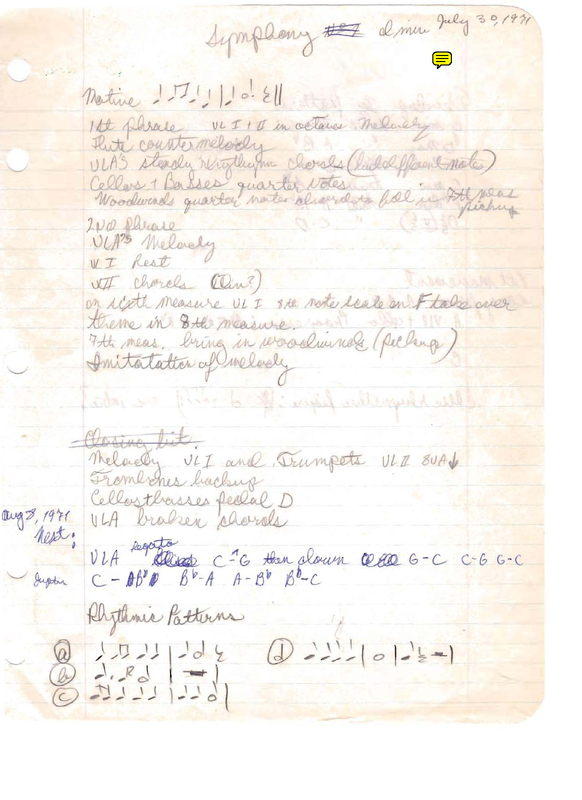 Symphony d min July 30, 1971
Motive
1st phrase VL I + II in octaves Melody
Flute countermelody
VLA's steady rhythm chords (hold different notes)
Cellos + Basses quarter notes
Woodwinds quarter note chords to fill in 7th meas pickup
2nd phrase
VLA's Melody
VL I Rest
VL II chords (Div?)
on sixth measure VL I 8th note scale on F take over
theme in 8th measure.
7th meas. bring in woodwinds (pickup)
Imitatation of melody
Closing bit.
Melody VL I and Trumpets VL II 8VA↓
Trombones backup
Cellos + basses pedal D
VLA broken chords
Aug 8, 1971
Next:
legato
VLA C-G then down G-C C-G G-C
C - Bb Bb-A A-Bb Bb-C
Rhythmic Patterns
a d
b
c